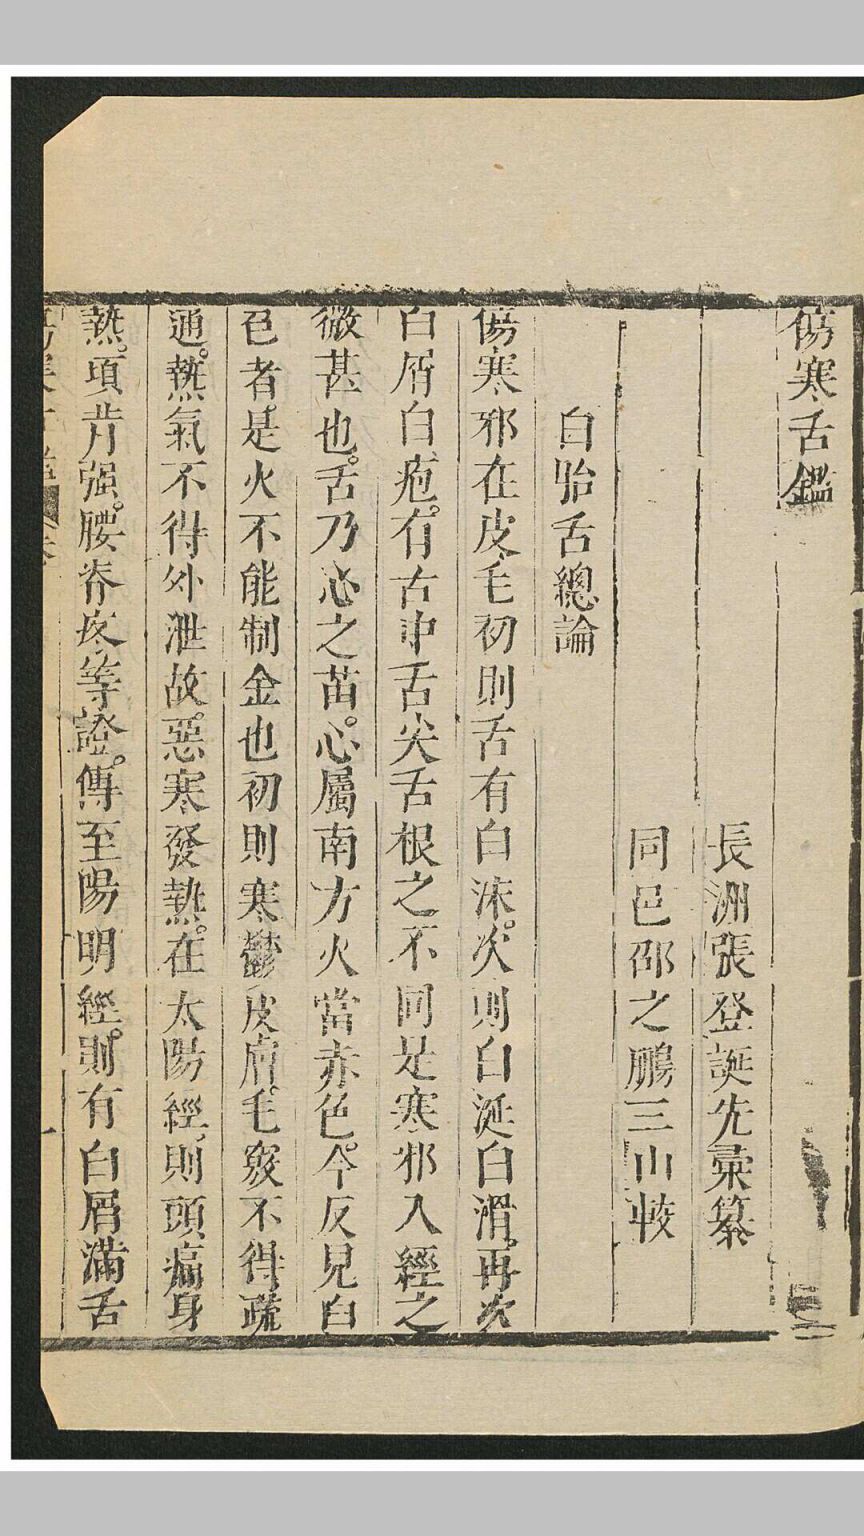 傷寒舌鑑
長洲張登誕先彙纂
同邑邵之鵬三山較
白胎舌總論
傷寒邪在皮毛初則舌有白沫。次則白涎白滑。再次
白屑白疱。有舌中舌尖舌根之不同是寒邪入經之
微甚也。舌乃心之苗。心屬南方火當赤色。今反見白
色者。是火不能制金也初則寒鬱皮膚。毛竅不得疏
通。熱氣不得外泄故。惡寒發熱。在太陽經。則頭痛身
熱。項背强。腰脊疼等證。傳至陽明經。則有白屑滿舌
一